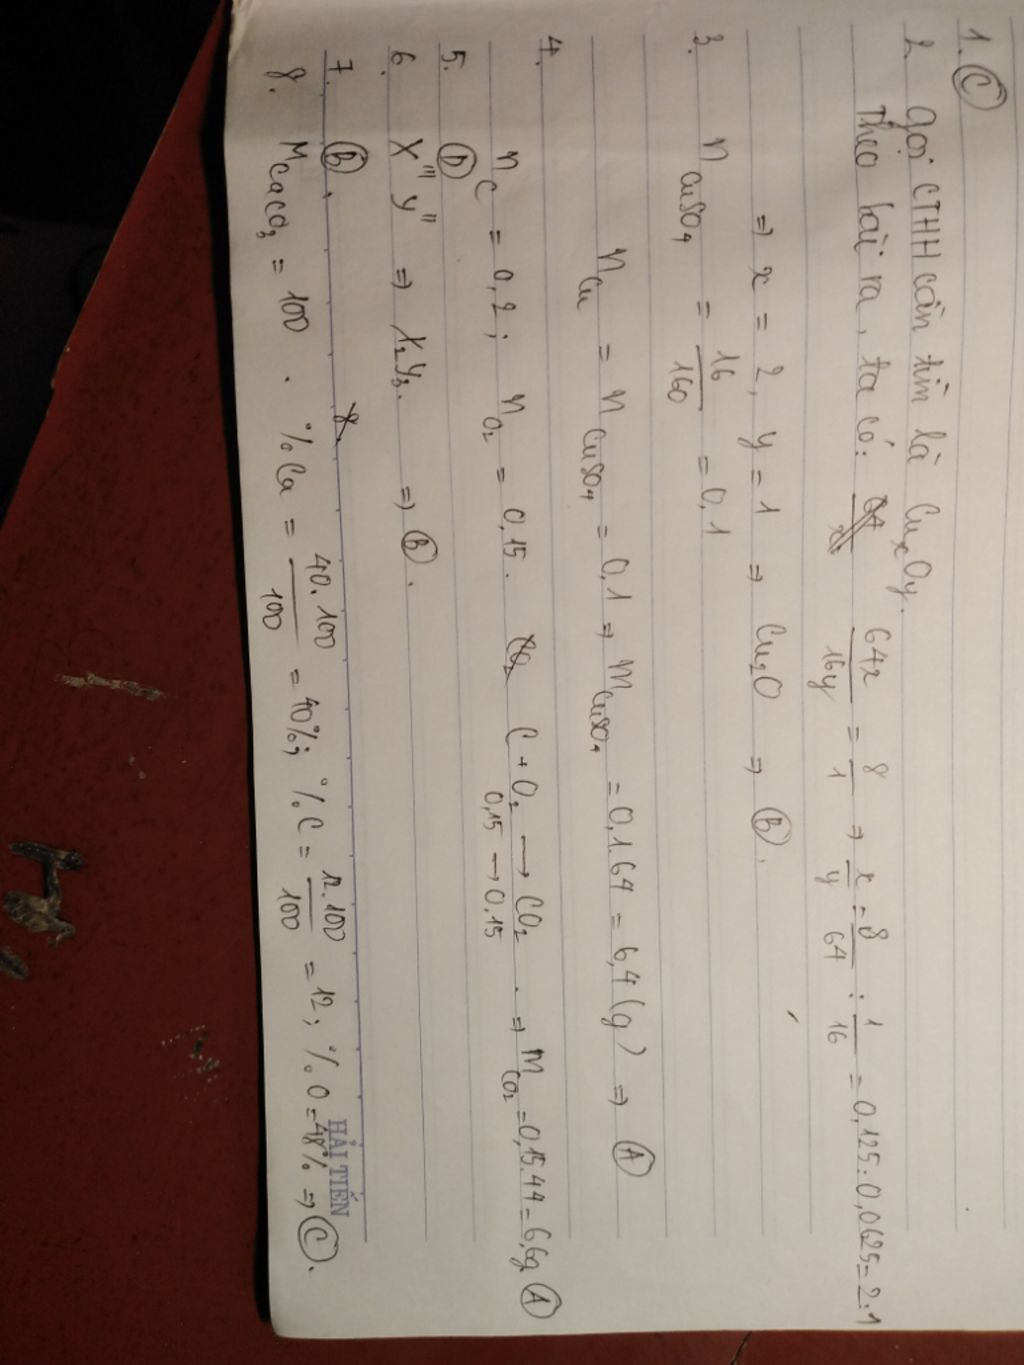 1. C
2. Gọi CTHH cần tìm là CuxOy.
Theo bài ra, ta có: 64x/16y = 8/1 ⇒ x/y = 8/64 : 1/16 = 0,125:0,0625=2:1
⇒ x = 2, y = 1 ⇒ Cu2O ⇒ B.
3. nCuSO4 = 16/160 = 0,1
nCu = nCuSO4 = 0,1 ⇒ mCuSO4 = 0,1.64 = 6,4 (g) ⇒ A
4. nC = 0,2; nO2 = 0,15. C + O2 → CO2. ⇒ mCO2 = 0,15.44 = 6,6g A
0,15 → 0,15
5. D
6. X''' Y'' ⇒ X2Y3. ⇒ B.
7. B.
8. MCaCO3 = 100. %Ca = 40.100/100 = 40%; %C = 12.100/100 = 12; %O = 48% ⇒ C.
HẢI TIẾN